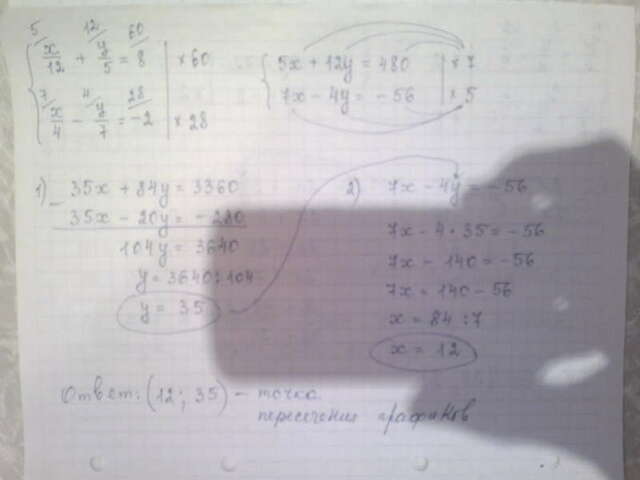 5 12 60
x/12 + y/5 = 8 | × 60
7 4 28
x/4 − y/7 = −2 | × 28
5x + 12y = 480 | × 7
7x − 4y = −56 | × 5
1) 35x + 84y = 3360
− 35x − 20y = −280
104y = 3640
y = 3640 : 104
y = 35
2) 7x − 4y = −56
7x − 4 · 35 = −56
7x − 140 = −56
7x = 140 − 56
x = 84 : 7
x = 12
Ответ: (12; 35) – точка
пересечения графиков